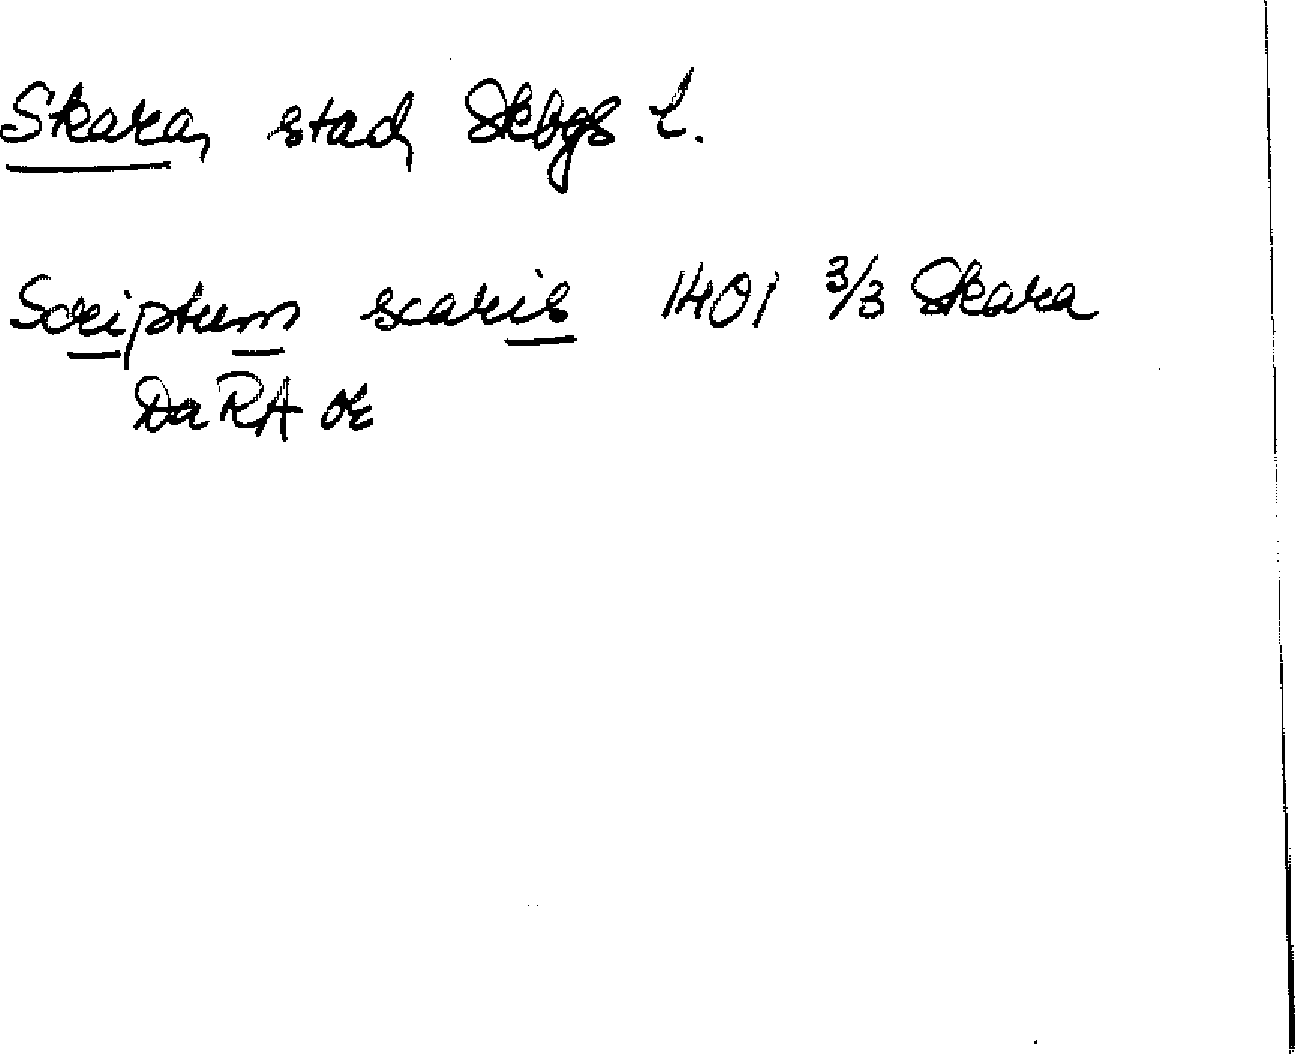 Skara, stad, Skbgs l.
Scriptum scaris 1401 3/3 Skara
DaRA or